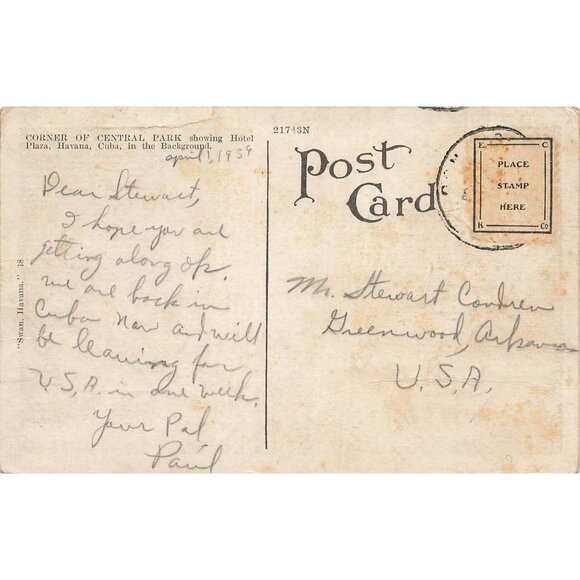 CORNER OF CENTRAL PARK showing Hotel
Plaza, Havana, Cuba, in the Background.
april 1, 1939
Dear Stewart,
I hope you are
getting along ok.
we are back in
Cuba now and will
be leaving for
U.S.A. in one week.
Your Pal
Paul
"Swan, Havana." 18
21743N
Post
Card
E C
PLACE
STAMP
HERE
K Co
Mr. Stewart Condren
Greenwood, Arkansas
U.S.A.